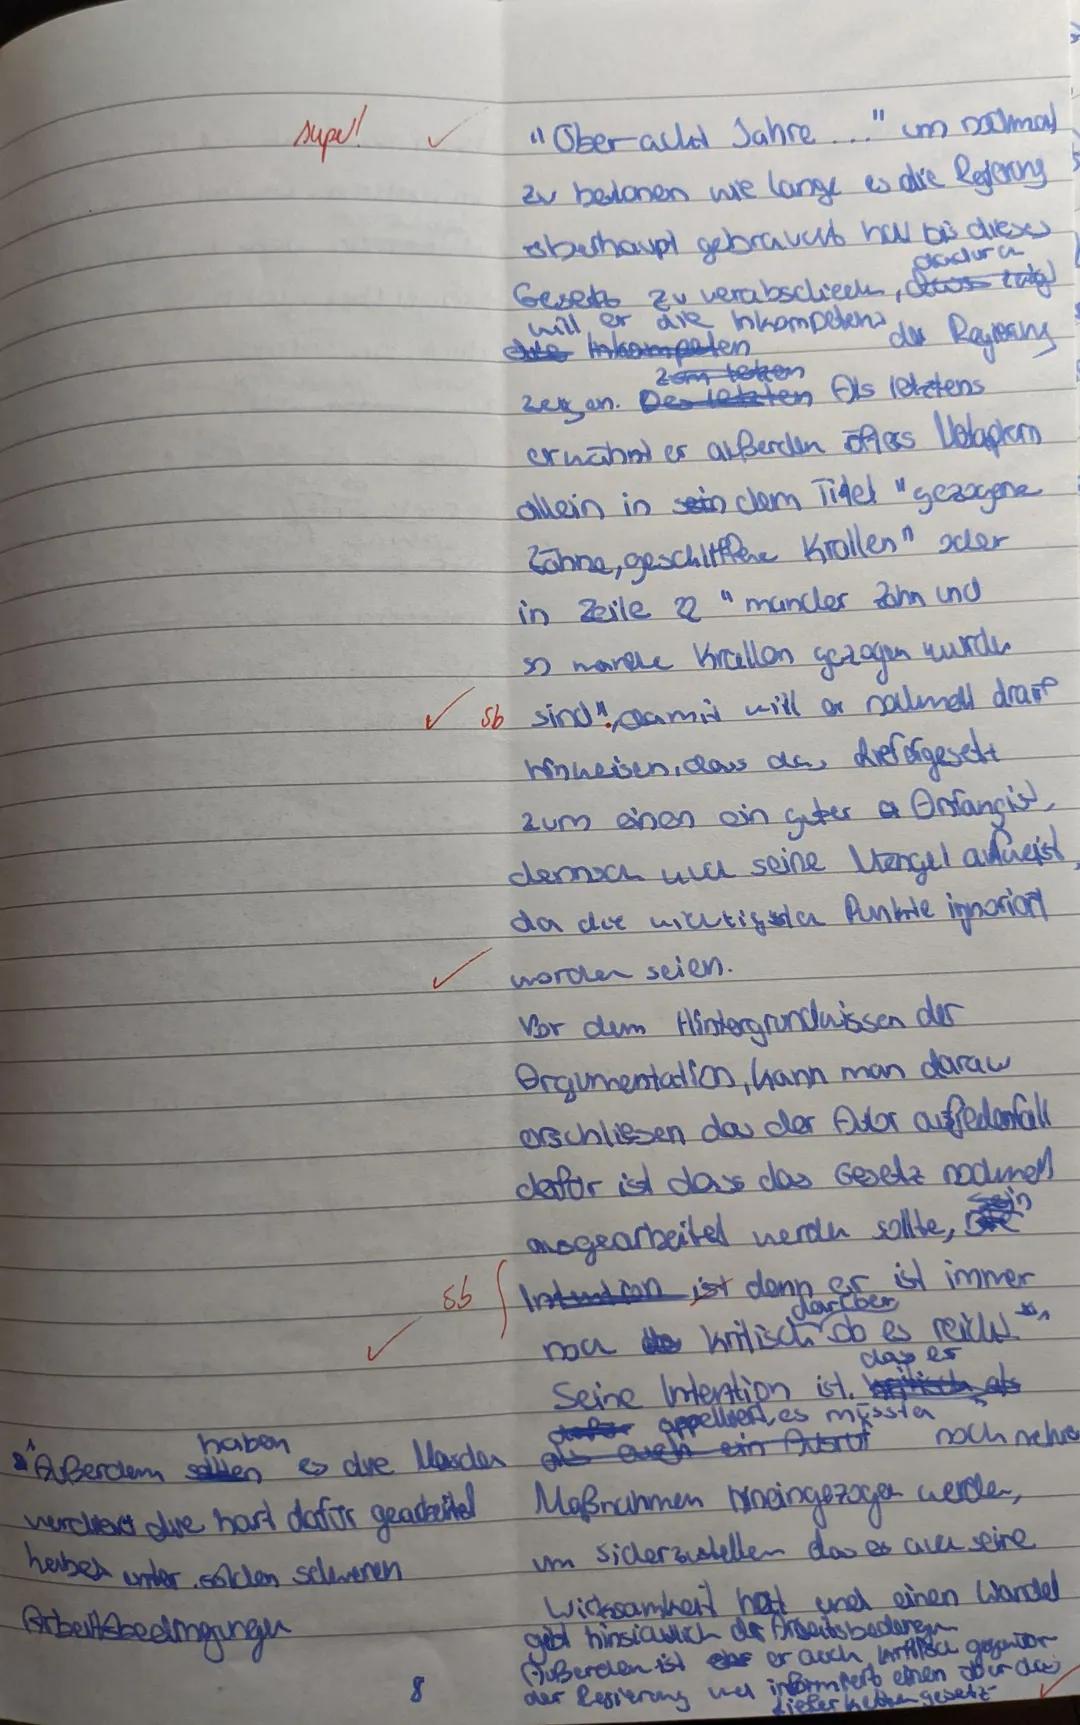 super!
"Über acht Jahre ..." um nochmal
zu betonen wie lange es die Regierung
überhaupt gebraucht hat bis dieses
dadurch
Gesetz zu verabschieden,
will er die Inkompetenz der Regierung
die Inkompeten
zum letzen
zeigen. Des letzten Als letztens
erwähnt er außerdem öfters Metaphern
allein in sein dem Titel "gezogene
Zähne, geschliffene Krallen" oder
in Zeile 22 "mancher Zahn und
so manche Krallen gezogen wurde
sb sind", damit will er nochmal drauf
hinweisen, dass das Liefergesetz
zum einen ein guter Anfang ist,
dennoch und seine Mängel aufweist,
da die wichtigsten Punkte ignoriert
worden seien.
Vor dem Hintergrundwissen der
Argumentation, kann man daraus
erschliesen das der Autor auf jedenfall
dafür ist dass das Gesetz nochmal
ausgearbeitet werden sollte,
sb Intention ist denn er ist immer
darüber
noch kritisch ob es reicht *1
das er
Seine Intention ist. kritisch als
appelliert, es müssten
als auch ein Aufruf noch mehr
Maßnahmen hineingezogen werden,
um sicherzustellen das es auch seine
Wirksamkeit hat und einen Wandel
gibt hinsichtlich der Arbeitsbedingungen
Außerdem ist er auch kritisch gegenüber
der Regierung und informiert einen über das
Lieferkettengesetz
haben
*1 Außerdem sollten es die Marden
verdient die hart dafür gearbeitet
haben unter solchen schweren
Arbeitsbedingungen
8